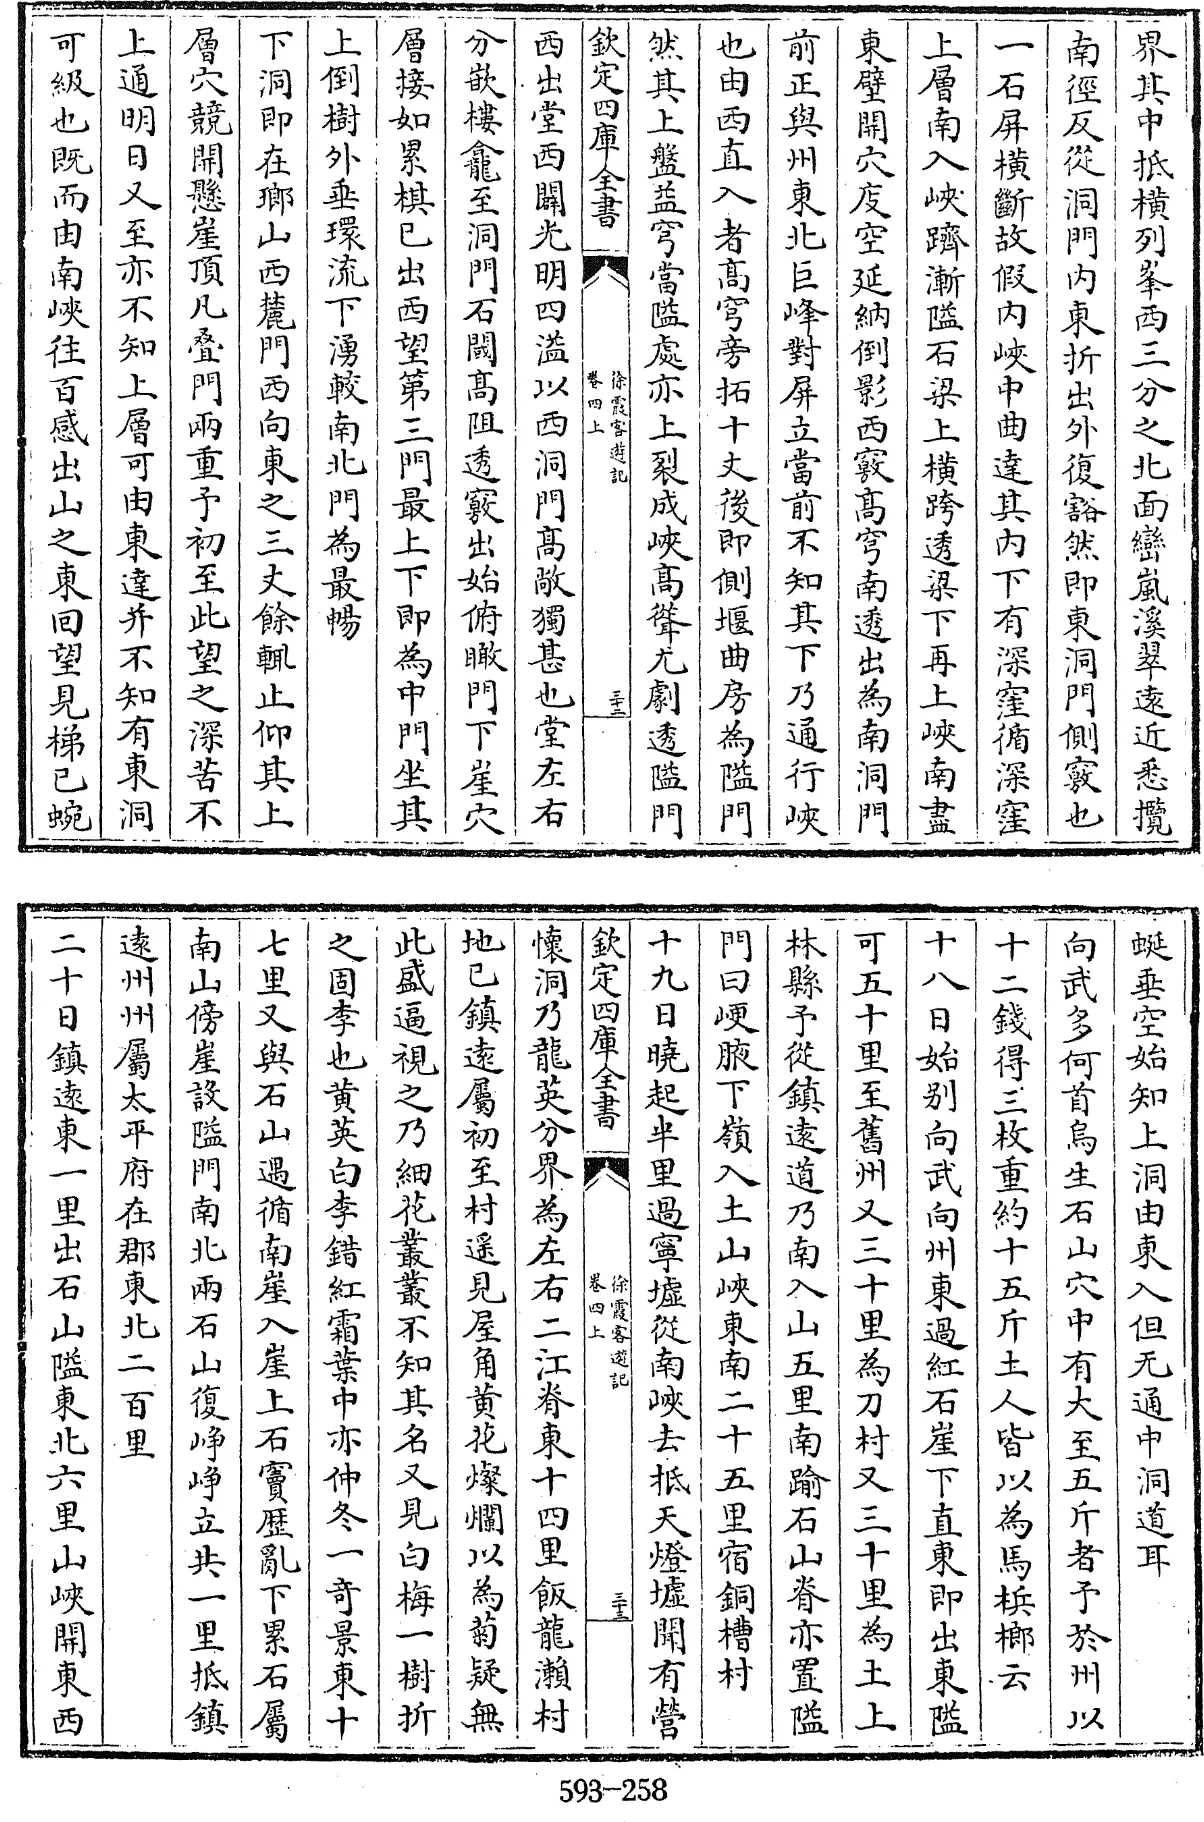 界其中抵橫列峯西三分之北面巒嵐溪翠遠近悉攬
南徑反從洞門内東折出外復豁然即東洞門側竅也
一石屏橫斷故假内峽中曲達其内下有深窪循深窪
上層南入峽躋漸隘石梁上橫跨透梁下再上峽南盡
東壁開穴庋空延納倒影西竅髙穹南透出為南洞門
前正與州東北巨峰對屏立當前不知其下乃通行峽
也由西直入者髙穹旁拓十丈後即側堰曲房為隘門
然其上盤益穹當隘處亦上裂成峽髙聳尤劇透隘門
欽定四庫全書
徐霞客遊記
卷四上
三十二
西出堂西闢光明四溢以西洞門髙敞獨甚也堂左右
分嵌樓龕至洞門石閾髙阻透竅出始俯瞰門下崖穴
層接如累棋已出西望第三門最上下即為中門坐其
上倒樹外垂環流下湧較南北門為最暢
下洞即在瑯山西麓門西向東之三丈餘輒止仰其上
層穴競開懸崖頂凡叠門兩重予初至此望之深苦不
上通明日又至亦不知上層可由東達并不知有東洞
可級也既而由南峽往百感出山之東回望見梯已蜿
蜒垂空始知上洞由東入但无通中洞道耳
向武多何首烏生石山穴中有大至五斤者予於州以
十二錢得三枚重約十五斤土人皆以為馬檳榔云
十八日始别向武向州東過紅石崖下直東即出東隘
可五十里至舊州又三十里為刀村又三十里為土上
林縣予從鎮遠道乃南入山五里南踰石山脊亦置隘
門曰峺腋下嶺入土山峽東南二十五里宿銅槽村
十九日曉起半里過寧墟從南峽去抵天燈墟開有營
欽定四庫全書
徐霞客遊記
卷四上
三十三
懷洞乃龍英分界為左右二江脊東十四里飯龍瀨村
地已鎮遠屬初至村遥見屋角黄花燦爛以為菊疑無
此盛逼視之乃細花叢叢不知其名又見白梅一樹折
之固李也黄英白李錯紅霜葉中亦仲冬一竒景東十
七里又與石山遇循南崖入崖上石竇歴亂下累石屬
南山傍崖設隘門南北兩石山復崢崢立共一里抵鎮
遠州州屬太平府在郡東北二百里
二十日鎮遠東一里出石山隘東北六里山峽開東西
593-258